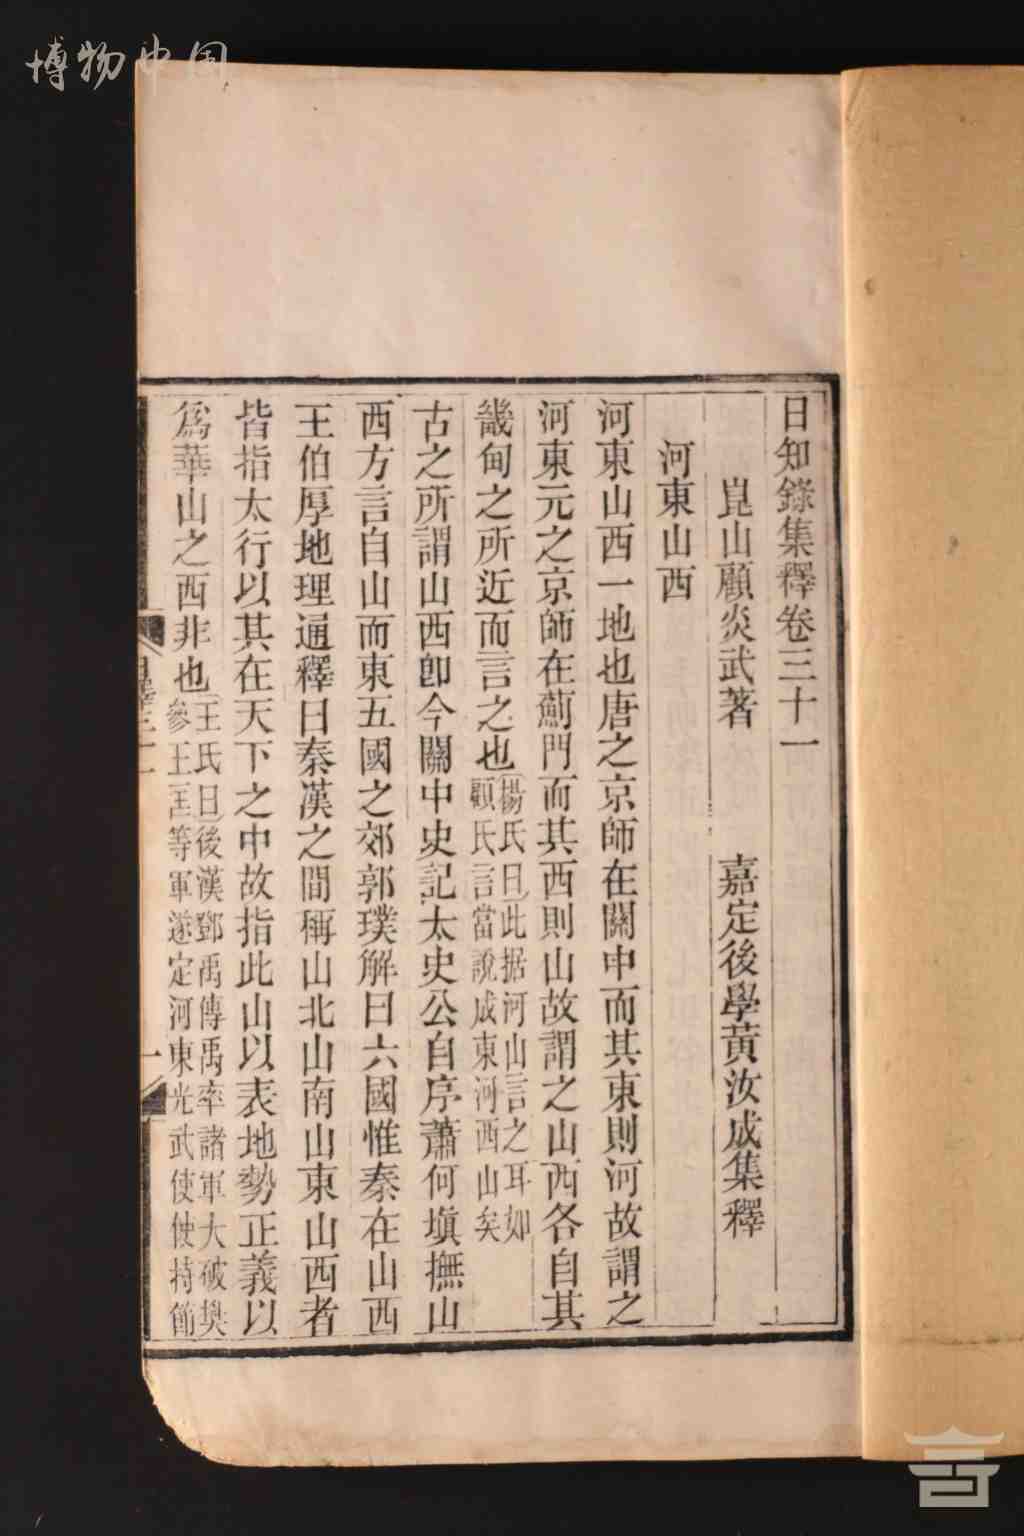 博物中国
日知錄集釋卷三十一
崑山顧炎武著 嘉定後學黃汝成集釋
河東山西
河東山西一地也唐之京師在關中而其東則河故謂之
河東元之京師在薊門而其西則山故謂之山西各自其
畿甸之所近而言之也楊氏曰此据河山言之耳如
顧氏言當說成東河西山矣
古之所謂山西卽今關中史記太史公自序蕭何塡撫山
西方言自山而東五國之郊郭璞解曰六國惟秦在山西
王伯厚地理通釋曰秦漢之間稱山北山南山東山西者
皆指太行以其在天下之中故指此山以表地勢正義以
爲華山之西非也王氏曰後漢鄧禹傳禹率諸軍大破樊
參王匡等軍遂定河東光武使使持節
一